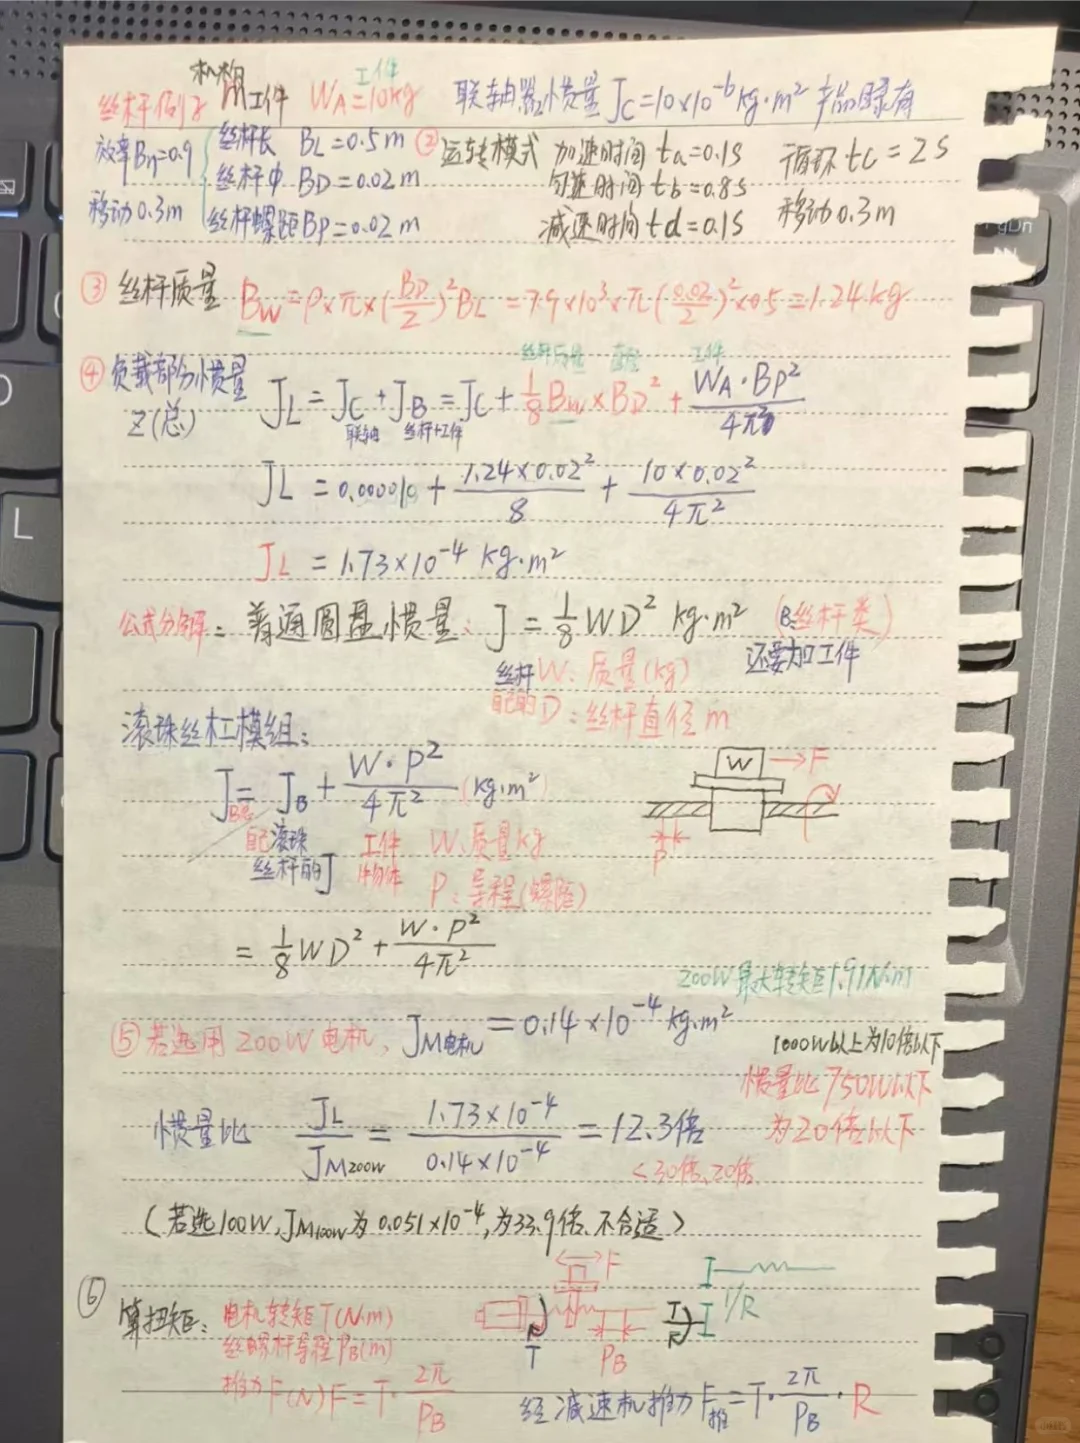 机构
丝杆例子 工件 WA=10kg 联轴器惯量 JC=10×10⁻⁶kg·m² 产品目录有
工件
效率Bη=0.9 丝杆长 BL=0.5m ② 运转模式 加速时间 ta=0.1s 循环 tc=2s
丝杆中 BD=0.02m 匀速时间 tb=0.8s
移动0.3m 丝杆螺距BP=0.02m 减速时间 td=0.1s 移动0.3m
③ 丝杆质量 BW=ρ×π×(BD/2)²BL=7.9×10³×π(0.02/2)²×0.5=1.24kg
丝杆质量 直径 工件
④ 负载部分惯量 JL=JC+JB=JC+1/8BW×BD²+WA·BP²/4π²
(总) 联轴 丝杆+工件
JL=0.000010+1.24×0.02²/8+10×0.02²/4π²
JL=1.73×10⁻⁴ kg·m²
公式分解: 普通圆盘惯量: J=1/8WD² kg·m² (B丝杆类)
丝杆 W:质量(kg) 还要加工件
自己的 D:丝杆直径 m
滚珠丝杠模组:
J=JB+W·P²/4π² (kg·m²)
B总
W F
P
自己滚珠 工件 W:质量kg
丝杆的J 物体 P:导程(螺距)
=1/8WD²+W·P²/4π²
200W最大转矩1.91N·m
⑤ 若选用200W电机, JM电机=0.14×10⁻⁴kg·m²
1000W以上为10倍以下
惯量比 750W以下
为20倍以下
惯量比 JL/JM200W=1.73×10⁻⁴/0.14×10⁻⁴=12.3倍
<30倍、20倍
(若选100W,JM100W为0.051×10⁻⁴,为33.9倍,不合适)
⑥
算扭矩: 电机转矩T(N·m)
丝杆导程PB(m)
F
T PB
T R 1/R
推力F(N) F=T·2π/PB 经减速机推力F推=T·2π/PB·R